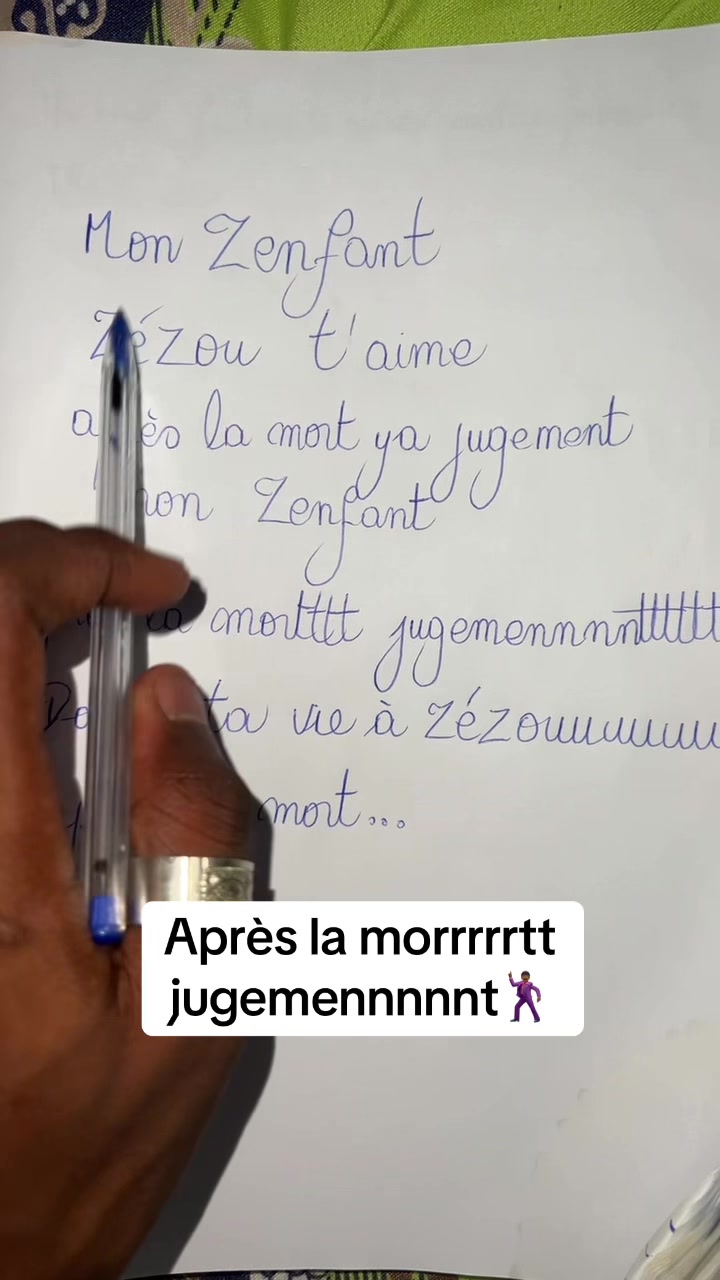 Mon Zenfant
Zézou t'aime
après la mort ya jugement
mon Zenfant
la morttttt jugemennnnntttttt
ta vie à Zézouuuuuuu
mort...
Après la morrrrrtt
jugemennnnnt🕺🏾